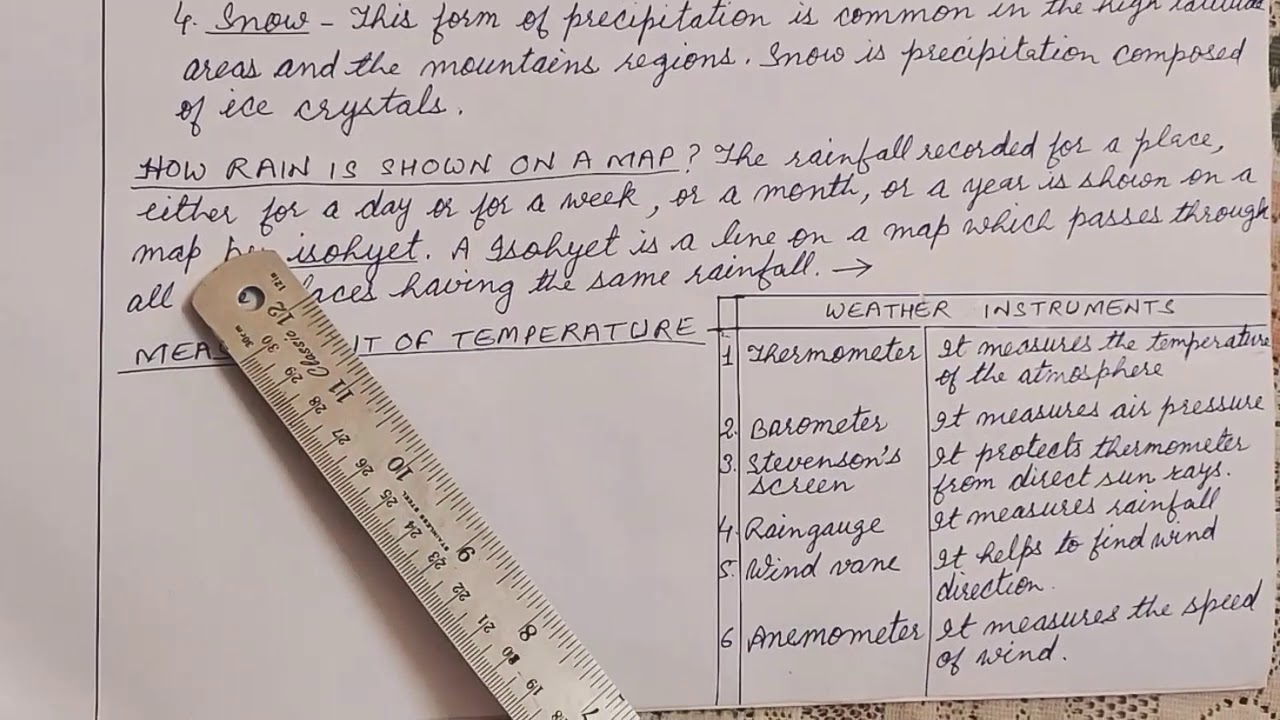 4. Snow - This form of precipitation is common in the high latitude
areas and the mountains regions. Snow is precipitation composed
of ice crystals.
HOW RAIN IS SHOWN ON A MAP? The rainfall recorded for a place,
either for a day or for a week, or a month, or a year is shown on a
map by isohyet. A Isohyet is a line on a map which passes through
all laces having the same rainfall. →
MEAS IT OF TEMPERATURE
WEATHER INSTRUMENTS
1 Thermometer It measures the temperature
of the atmosphere
2. Barometer It measures air pressure
3. Stevenson's It protects thermometer
screen from direct sun rays.
4. Raingauge It measures rainfall
5. Wind vane It helps to find wind
direction.
6 Anemometer It measures the speed
of wind.
12in
30cm
12
30
Classic
29
11
28
27
26
10
25
STAINLESS STEEL
24
23
9
22
21
8
20
19
7